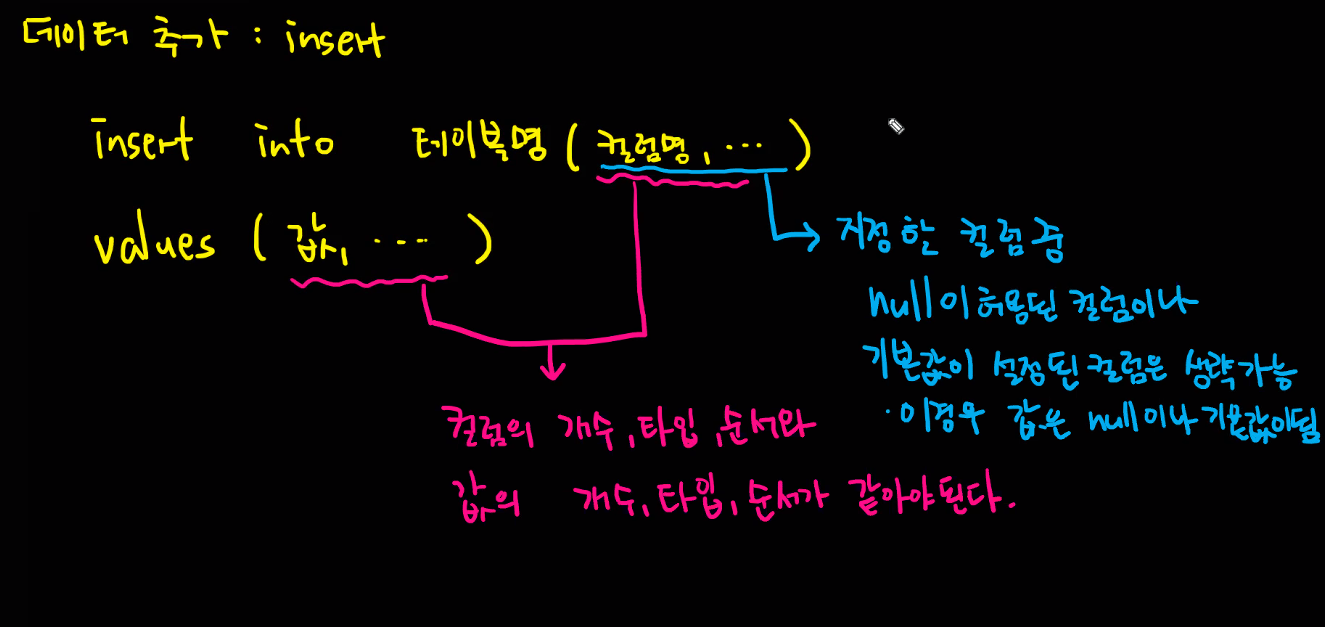 데이터 추가 : insert
insert into 테이블명 ( 컬럼명, ··· )
values ( 값, ··· )
지정한 컬럼중
null이 허용된 컬럼이나
기본값이 설정된 컬럼은 생략가능
· 이경우 값은 null이나 기본값이됨
컬럼의 개수, 타입, 순서와
값의 개수, 타입, 순서가 같아야된다.